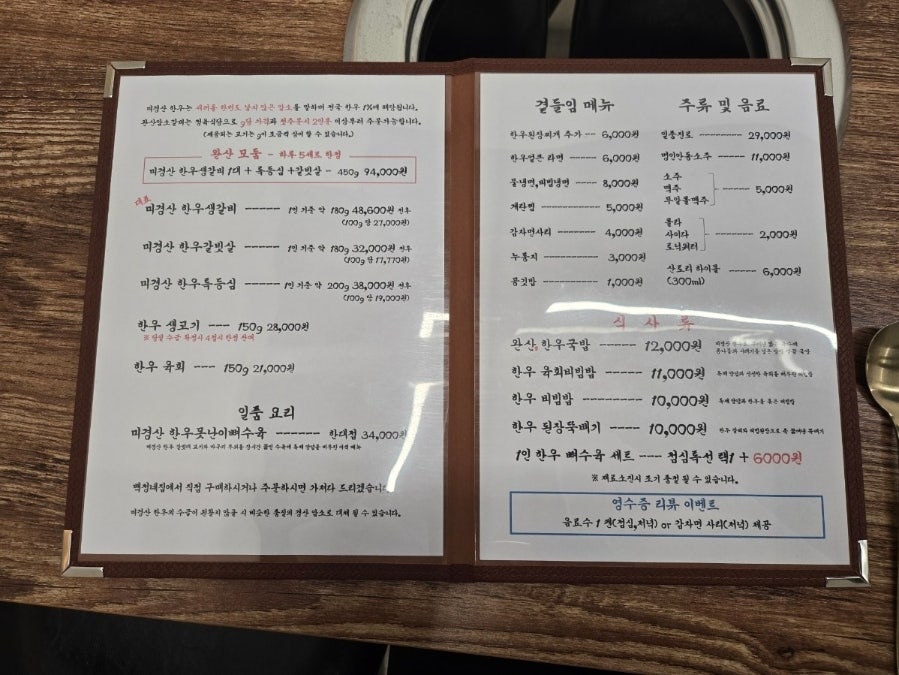 미경산 한우는 새끼를 한번도 낳지 않은 암소를 말하며 전국 한우 1%에 해당됩니다.
완산암소갈비는 정육식당으로 g당 가격과 첫주문시 2인분 이상부터 주문가능합니다.
(제공되는 고기는 g이 조금씩 상이 할 수 있습니다.)
완산 모둠 - 하루 5세트 한정
미경산 한우생갈비 1대 + 특등심 + 갈빗살 - 450g 94,000원
대표
미경산 한우생갈비 ----- 1인 기준 약 180g 48,600원
(100g 당 27,000원)
미경산 한우갈빗살 ------ 1인 기준 약 180g 32,000원
(100g 당 17,770원)
미경산 한우특등심 ----- 1인 기준 약 200g 38,000원
(100g 당 19,000원)
한우 생고기 --- 150g 28,000원
한우 육회 --- 150g 21,000원
일품 요리
미경산 한우못난이뼈수육 ------ 한대접 34,000원
백정네집에서 직접 구매하시거나 주문하시면 가져다 드리겠습니다
미경산 한우의 수급이 원활치 않을 시 비슷한 품질의 경산 암소로 대체 될 수 있습니다.
곁들임 메뉴
한우된장찌개 추가 -- 6,000원
한우얼큰 라면 ---- 6,000원
물냉면,비빔냉면 --- 8,000원
계란찜 ------- 5,000원
감자면사리 ----- 4,000원
누룽지 ------- 3,000원
공깃밥 ------- 1,000원
주류 및 음료
일품진로 -------- 29,000원
명인안동소주 ---- 11,000원
소주
맥주
무알콜맥주
------ 5,000원
콜라
사이다
토닉워터
------ 2,000원
산토리 하이볼 ----- 6,000원
(300ml)
식 사 류
완산 한우국밥 ----- 12,000원
한우 육회비빔밥 ----- 11,000원
한우 비빔밥 -------- 10,000원
한우 된장뚝배기 ---- 10,000원
1인 한우 뼈수육 세트 --- 점심특선 택1 + 6000원
※ 재료소진시 조기 품절 될 수 있습니다.
영수증 리뷰 이벤트
음료수 1 캔(점심,저녁) or 감자면 사리(저녁) 제공